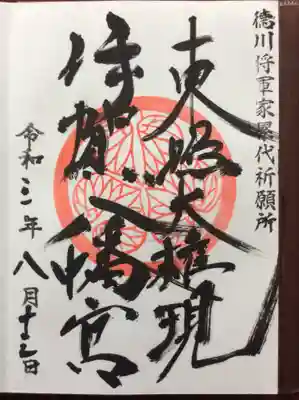 徳川将軍家累代祈願所
東照大権現
伊賀八幡宮
令和三年八月十三日